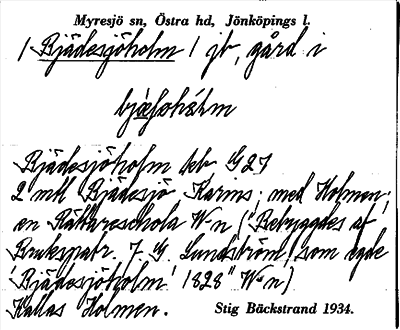 Myresjö sn, Östra hd, Jönköpings l.
/ Bjädesjöholm / jb, gård i
Bjädesjöholm jeb G 27
2 mtl Bjädesjö Karins; med Holmen;
en Rättareskola W-n ("Bebyggdes af
Brukspatr. J. G. Lundström, som egde
'Bjädesjöholm' 1828" W-n)
Kallas Holmen.
Stig Bäckstrand 1934.